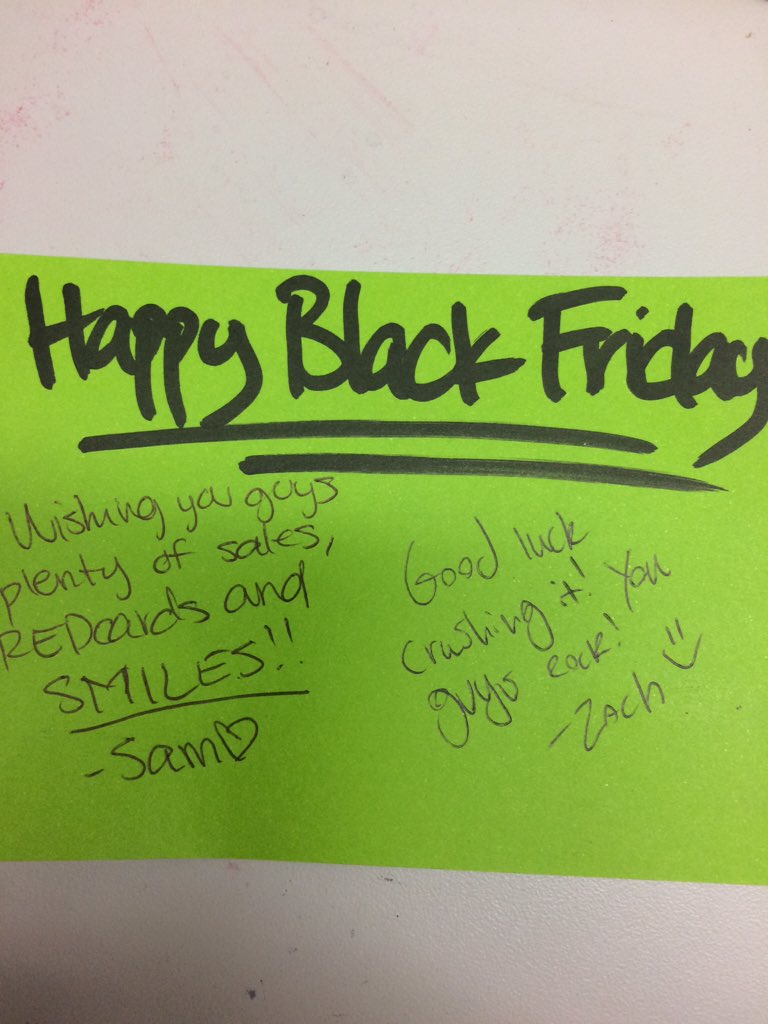 Happy Black Friday
Wishing you guys
plenty of sales,
REDcards and
SMILES!!
-Sam♡
Good luck
crushing it! You
guys rock!
-Zach :)